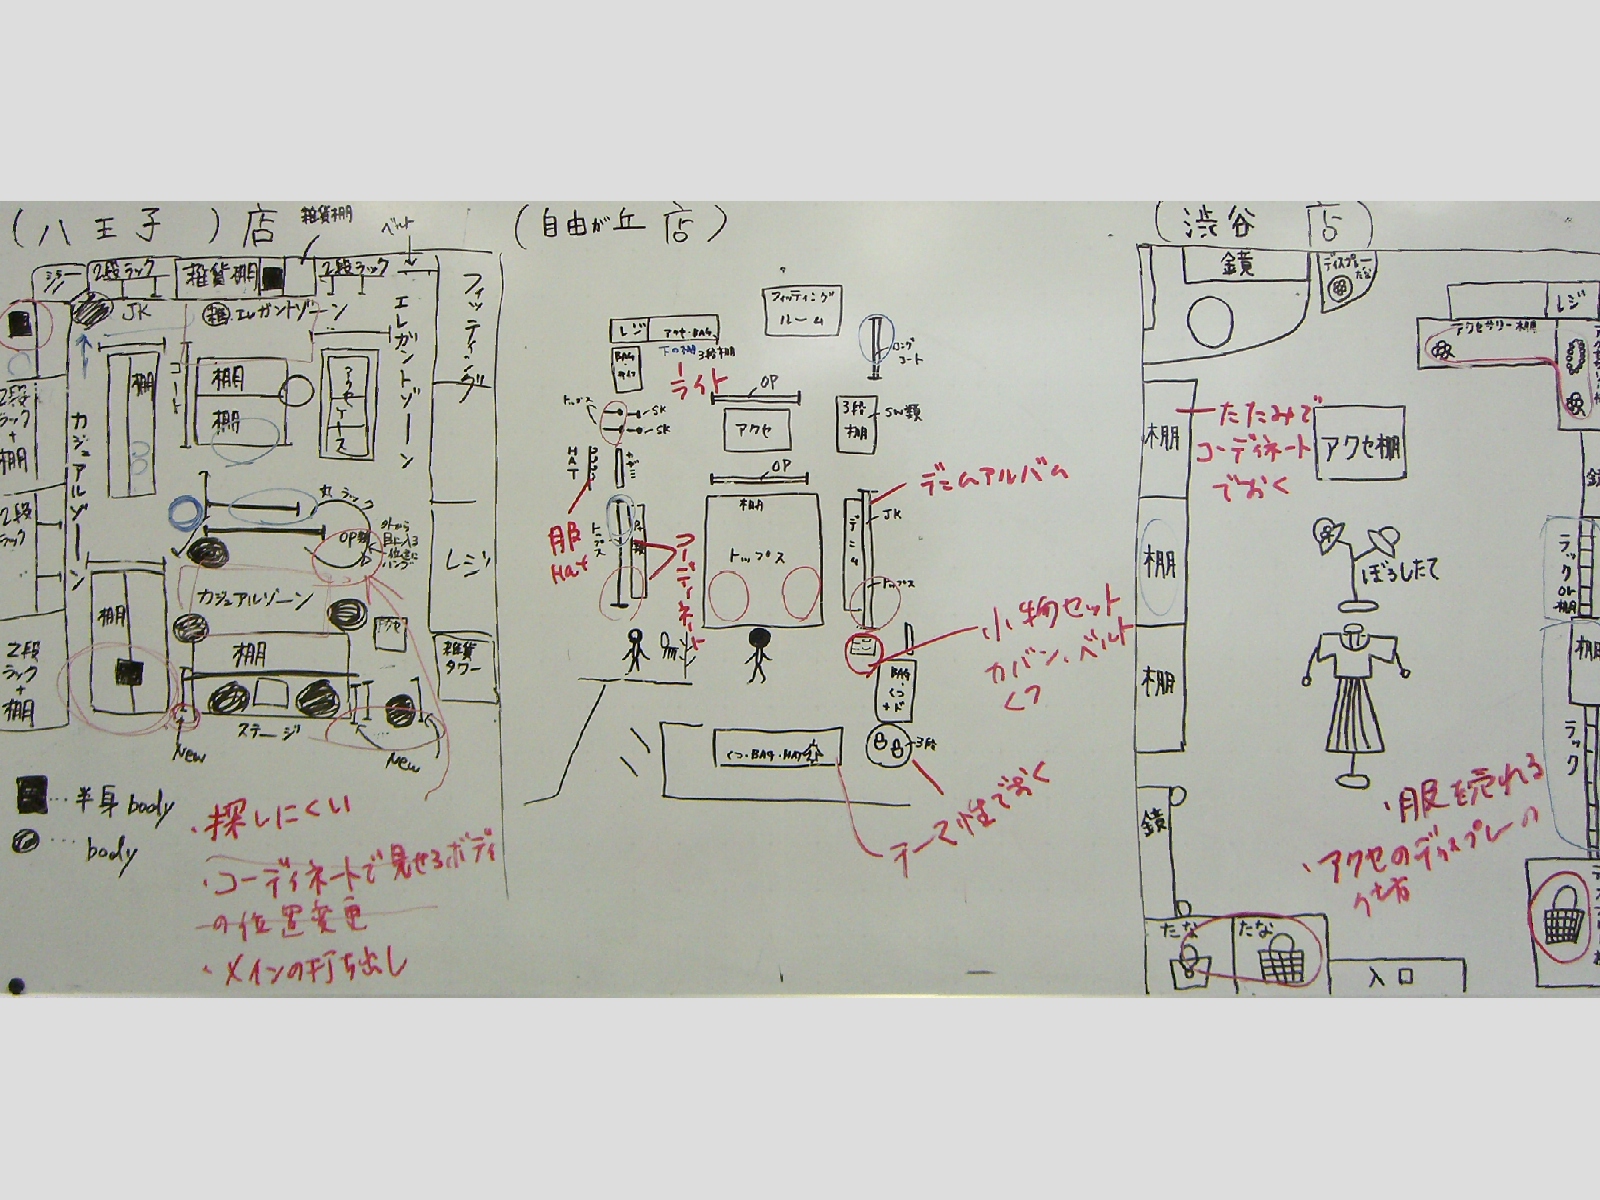 (八王子)店
雑貨棚
ベルト
ミラー
2段ラック
雑貨棚
2段ラック
フィッティング
JK
雑
エレガントゾーン
エレガントゾーン
棚
コート
棚
棚
アクセケース
2段ラック+棚
カジュアルゾーン
2段ラック
丸ラック
OP類
外から目に入る位置に
レジ
カジュアルゾーン
棚
アクセ
棚
雑貨タワー
2段ラック+棚
ステージ
New
New
…半身body
…body
・探しにくい
・コーディネートで見せるボディ
の位置変更
・メインの打ち出し
(自由が丘店)
フィッティングルーム
レジ
アクセ・BAG
下の棚3段棚
ライト
BAG
ロングコート
OP
トップス
SK
SK
アクセ
3段棚
SW類
HAT
OP
服
Hat
トップス
コーディネート
棚
トップス
デニムアルバム
JK
デニム
トップス
小物セット
カバン、ベルト
くつ
BAG
くつ
くつ・BAG・HAT
3段
テーマ性でおく
(渋谷店)
鏡
ディスプレーたな
レジ
アクセサリー棚
棚
たたみで
コーディネート
でおく
アクセ棚
棚
ぼうしたて
ラックor棚
棚
棚
ラック
・服を売れる
・アクセのディスプレーの
仕方
鏡
たな
たな
入口